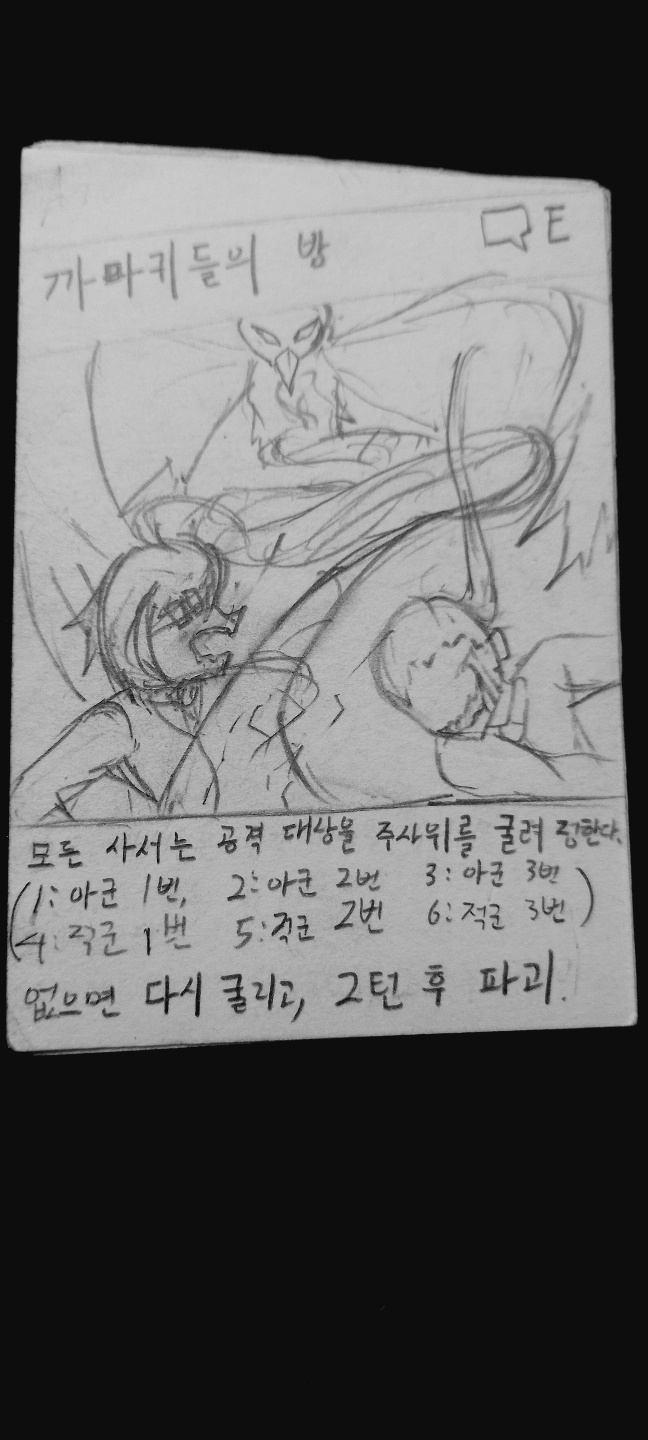 까마귀들의 방
E
모든 사서는 공격 대상을 주사위를 굴려 정한다.
(1: 아군 1번, 2: 아군 2번 3: 아군 3번
4: 적군 1번 5: 적군 2번 6: 적군 3번)
없으면 다시 굴리고, 2턴 후 파괴.